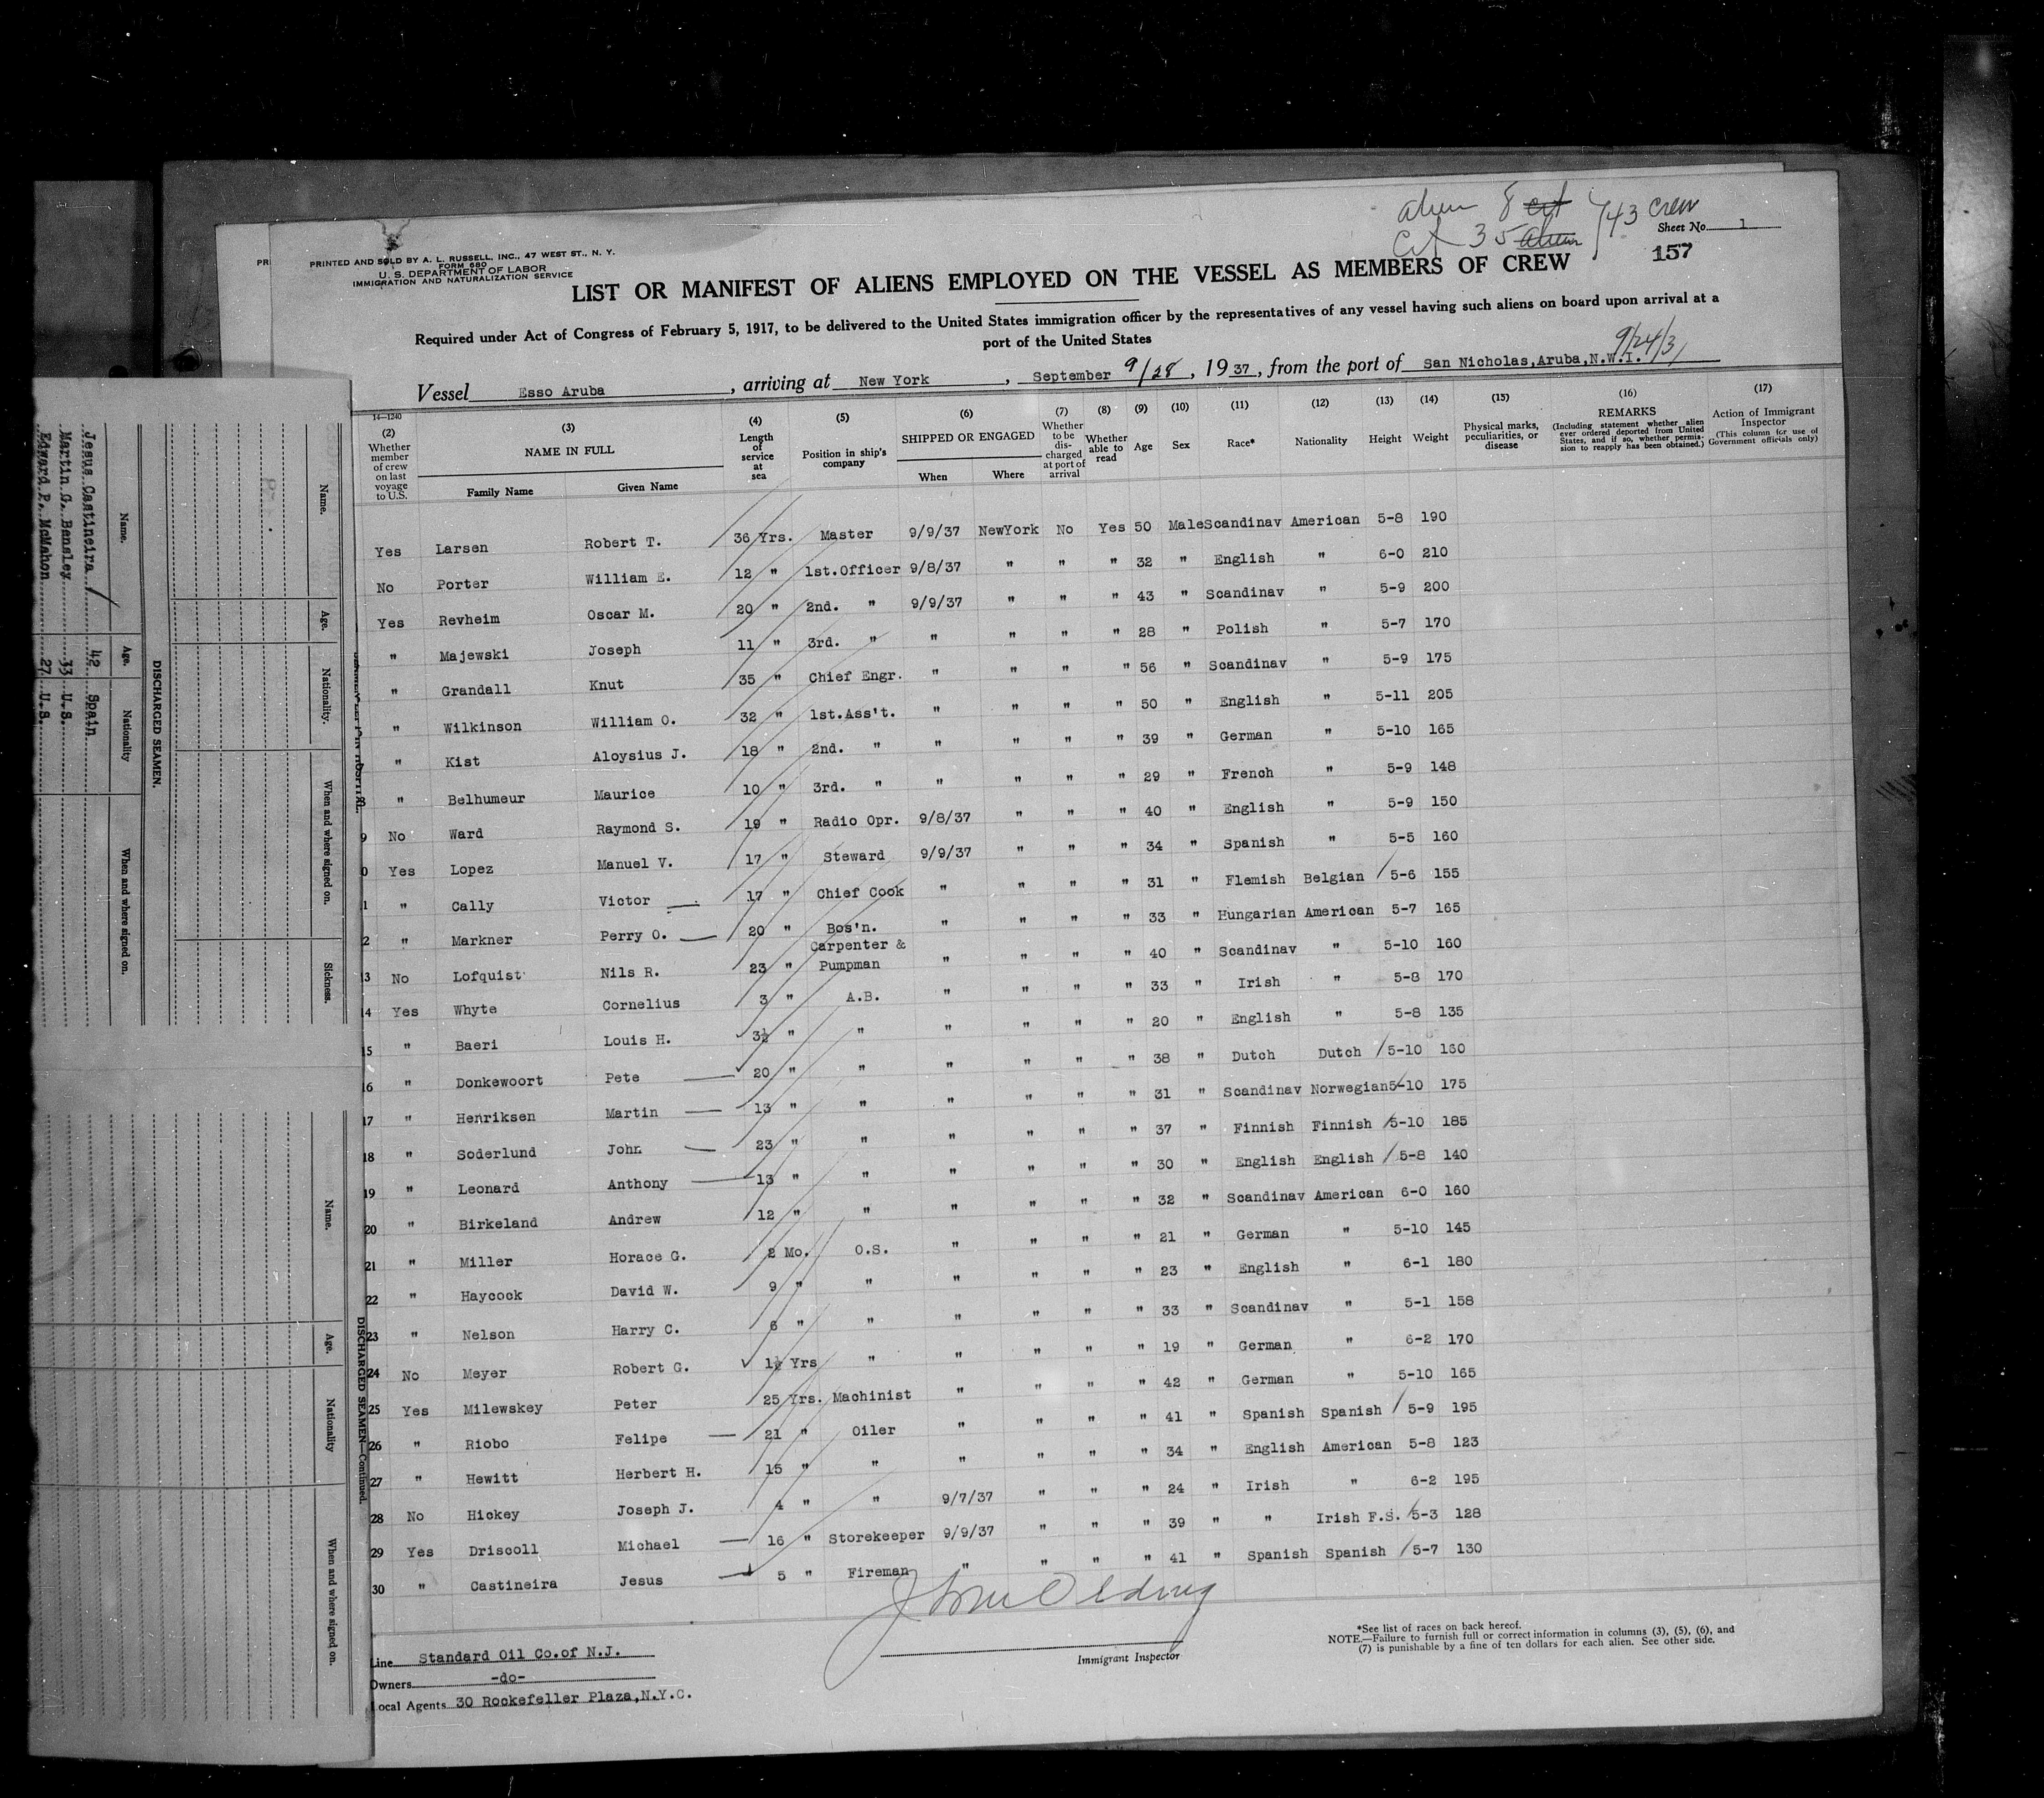 alien 8 cit
cit 35 alien } 43 crew
Sheet No. 1
157
PRINTED AND SOLD BY A. L. RUSSELL, INC., 47 WEST ST., N. Y.
FORM 680
U. S. DEPARTMENT OF LABOR
IMMIGRATION AND NATURALIZATION SERVICE
LIST OR MANIFEST OF ALIENS EMPLOYED ON THE VESSEL AS MEMBERS OF CREW
Required under Act of Congress of February 5, 1917, to be delivered to the United States immigration officer by the representatives of any vessel having such aliens on board upon arrival at a
port of the United States
9/24/37
Vessel Esso Aruba, arriving at New York, September 9/28, 1937, from the port of San Nicholas,Aruba,N.W.I.
14-1240
(2) Whether member of crew on last voyage to U.S.
(3) NAME IN FULL Family Name Given Name
(4) Length of service at sea
(5) Position in ship's company
(6) SHIPPED OR ENGAGED When Where
(7) Whether to be discharged at port of arrival
(8) Whether able to read
(9) Age
(10) Sex
(11) Race*
(12) Nationality
(13) Height
(14) Weight
(15) Physical marks, peculiarities, or disease
(16) REMARKS (Including statement whether alien ever ordered deported from United States, and if so, whether permission to reapply has been obtained.)
(17) Action of Immigrant Inspector (This column for use of Government officials only)
Yes Larsen Robert T. 36 Yrs. Master 9/9/37 NewYork No Yes 50 Male Scandinav American 5-8 190
No Porter William E. 12 " 1st.Officer 9/8/37 " " " 32 " English " 6-0 210
Yes Revheim Oscar M. 20 " 2nd. " 9/9/37 " " " 43 " Scandinav " 5-9 200
" Majewski Joseph 11 " 3rd. " " " " " 28 " Polish " 5-7 170
" Grandall Knut 35 " Chief Engr. " " " " 56 " Scandinav " 5-9 175
" Wilkinson William O. 32 " 1st.Ass't. " " " " 50 " English " 5-11 205
" Kist Aloysius J. 18 " 2nd. " " " " " 39 " German " 5-10 165
8 " Belhumeur Maurice 10 " 3rd. " " " " " 29 " French " 5-9 148
9 No Ward Raymond S. 19 " Radio Opr. 9/8/37 " " " 40 " English " 5-9 150
0 Yes Lopez Manuel V. 17 " Steward 9/9/37 " " " 34 " Spanish " 5-5 160
1 " Cally Victor 17 " Chief Cook " " " " 31 " Flemish Belgian 5-6 155
2 " Markner Perry O. 20 " Bos'n. " " " " 33 " Hungarian American 5-7 165
3 No Lofquist Nils R. 23 " Carpenter & Pumpman " " " " 40 " Scandinav " 5-10 160
4 Yes Whyte Cornelius 3 " A.B. " " " " 33 " Irish " 5-8 170
15 " Baeri Louis H. 3½ " " " " " " 20 " English " 5-8 135
16 " Donkewoort Pete 20 " " " " " " 38 " Dutch Dutch 5-10 160
17 " Henriksen Martin 13 " " " " " " 31 " Scandinav Norwegian 5-10 175
18 " Soderlund John 23 " " " " " " 37 " Finnish Finnish 5-10 185
19 " Leonard Anthony 13 " " " " " " 30 " English English 5-8 140
20 " Birkeland Andrew 12 " " " " " " 32 " Scandinav American 6-0 160
21 " Miller Horace G. 2 Mo. O.S. " " " " 21 " German " 5-10 145
22 " Haycock David W. 9 " " " " " " 23 " English " 6-1 180
23 " Nelson Harry C. 6 " " " " " " 33 " Scandinav " 5-1 158
24 No Meyer Robert G. 1½ Yrs " " " " " 19 " German " 6-2 170
25 Yes Milewskey Peter 25 Yrs. Machinist " " " " 42 " German " 5-10 165
26 " Riobo Felipe 21 " Oiler " " " " 41 " Spanish Spanish 5-9 195
27 " Hewitt Herbert H. 15 " " " " " " 34 " English American 5-8 123
28 No Hickey Joseph J. 4 " " 9/7/37 " " " 24 " Irish " 6-2 195
29 Yes Driscoll Michael 16 " Storekeeper 9/9/37 " " " 39 " " Irish F.S. 5-3 128
30 " Castineira Jesus 5 " Fireman " " " " 41 " Spanish Spanish 5-7 130
Immigrant Inspector
*See list of races on back hereof.
NOTE.—Failure to furnish full or correct information in columns (3), (5), (6), and
(7) is punishable by a fine of ten dollars for each alien. See other side.
Line Standard Oil Co.of N.J.
Owners -do-
Local Agents 30 Rockefeller Plaza,N.Y.C.
Name. Age. Nationality. When and where signed on. Sickness.
DISCHARGED SEAMEN.
Name. Age. Nationality When and where signed on.
Jesus Castineira 42 Spain
Martin G. Bensley 33 U.S.
Edward P. McMahon 27 U.S.
DISCHARGED SEAMEN—Continued.
Name. Age. Nationality When and where signed on.